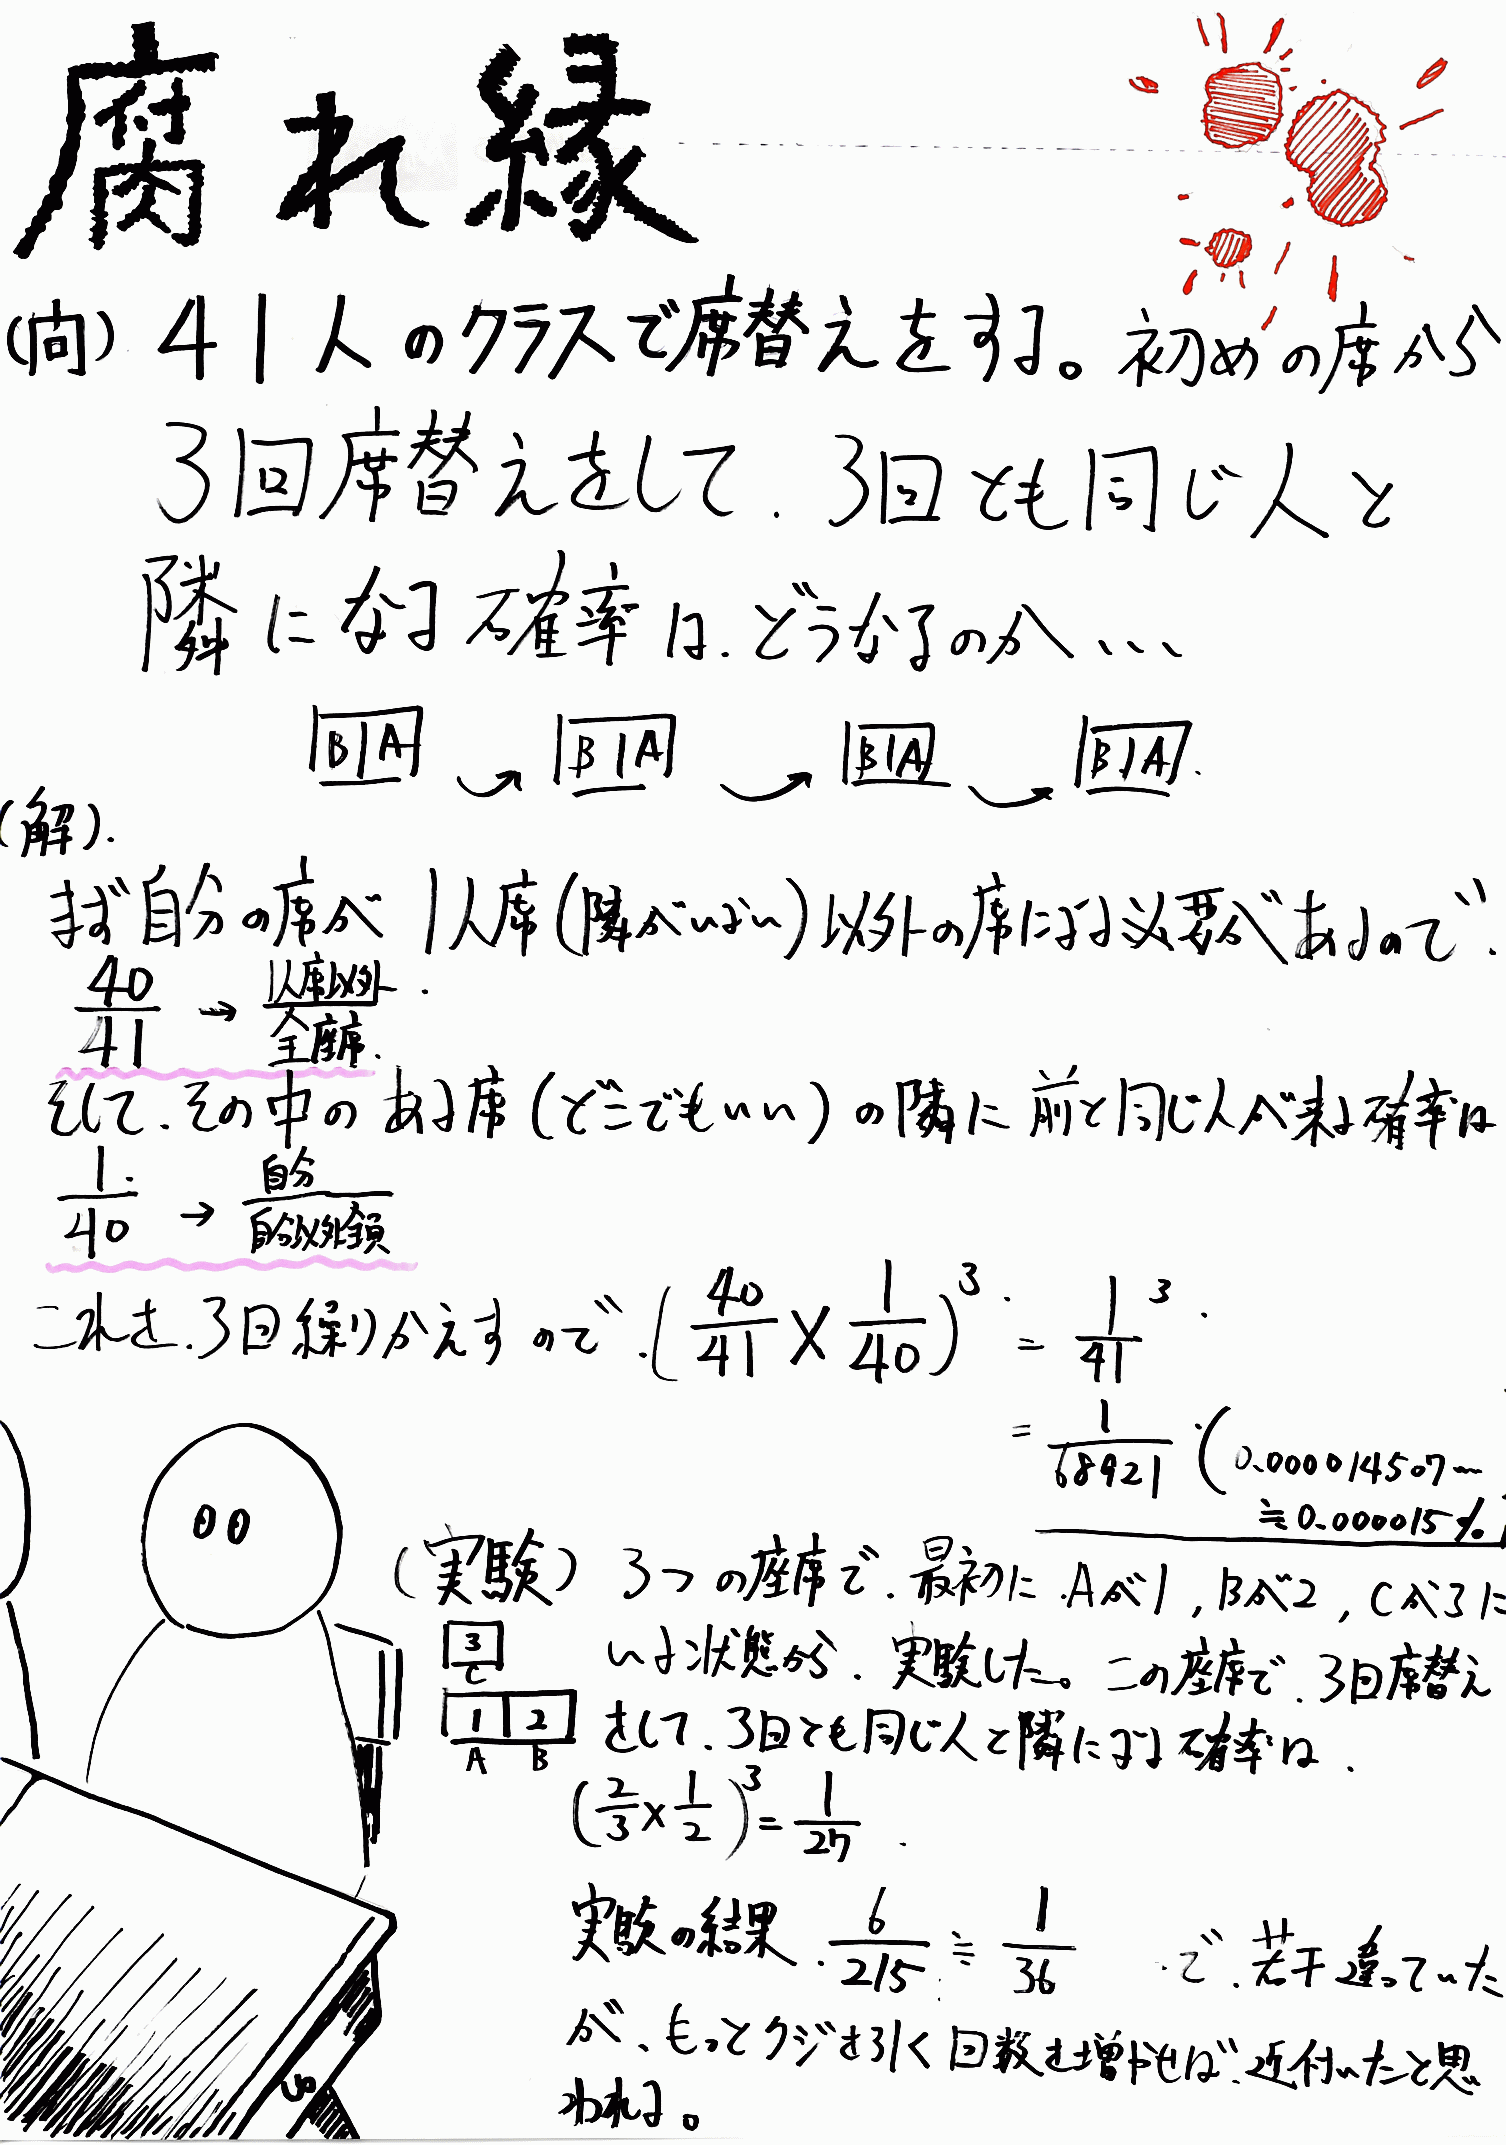 腐れ縁
(問) 41人のクラスで席替えをする。初めの席から
3回席替えをして、3回とも同じ人と
隣になる確率は、どうなるのか、、、
B A B A B A B A
(解).
まず自分の席が1人席(隣がいない)以外の席になる必要があるので、
40/41 → 1人席以外/全座席.
そして、その中のある席(どこでもいい)の隣に前と同じ人が来る確率は
1/40 → 自分/自分以外全員
これを、3回繰りかえすので、(40/41 × 1/40)³ = 1/41³
= 1/68921 (0.000014507…
≒0.000015%)
(実験) 3つの座席で、最初に、Aが1, Bが2, Cが3に
いる状態から、実験した。この座席で、3回席替え
をして、3回とも同じ人と隣になる確率は、
3
C
1 2
A B
(2/3×1/2)³=1/27
実験の結果、6/215≒1/36 で、若干違っていた
が、もっとクジを引く回数を増やせば、近付いたと思
われる。